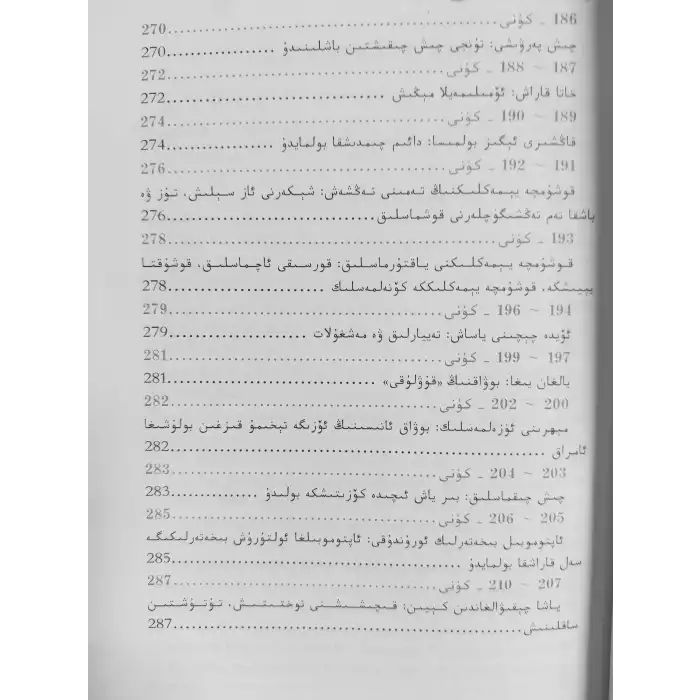 186 ـ كۈنى..............................270
چىش پەرۋىشى: تۇنجى چىش چىقىشتىن باشلىنىدۇ .................270
187 ~ 188 ـ كۈنى..............................272
خاتا قاراش: ئۆمىلىمەيلا مېڭىش ..............................272
189 ~ 190 ـ كۈنى..............................274
قاڭشىرى ئېگىز بولمىسا: دائىم چىمدىشقا بولمايدۇ .................274
191 ~ 192 ـ كۈنى..............................276
قوشۇمچە يېمەكلىكنىڭ تەمىنى تەڭشەش: شېكەرنى ئاز سېلىش، تۇز ۋە
باشقا تەم تەڭشىگۈچلەرنى قوشماسلىق..............................276
193 ـ كۈنى..............................278
قوشۇمچە يېمەكلىكنى ياقتۇرماسلىق: قورسىقى ئاچماسلىق، قوشۇقتا
يېيىشكە، قوشۇمچە يېمەكلىككە كۆنەلمەسلىك ......................278
194 ~ 196 ـ كۈنى..............................279
ئۆيدە چېچىنى ياساش: تەييارلىق ۋە مەشغۇلات ......................279
197 ~ 199 ـ كۈنى..............................281
يالغان يىغا: بوۋاقنىڭ «قۇۋلۇقى» ..............................281
200 ~ 202 ـ كۈنى..............................282
مېھرىنى ئۈزەلمەسلىك: بوۋاق ئانىسىنىڭ ئۆزىگە تېخىمۇ قىزغىن بولۇشىغا
ئامراق ..............................282
203 ~ 204 ـ كۈنى..............................283
چىش چىقماسلىق: بىر ياش ئىچىدە كۆزىتىشكە بولىدۇ .................283
205 ~ 206 ـ كۈنى..............................285
ئاپتوموبىل بىخەتەرلىك ئورۇندۇقى: ئاپتوموبىلغا ئولتۇرۇش بىخەتەرلىكىگە
سەل قاراشقا بولمايدۇ ..............................285
207 ~ 210 ـ كۈنى..............................287
ياشا چىقىۋالغاندىن كېيىن: قىچىشىشنى توختىتىش، تۇتۇشتىن
ساقلىنىش..............................287